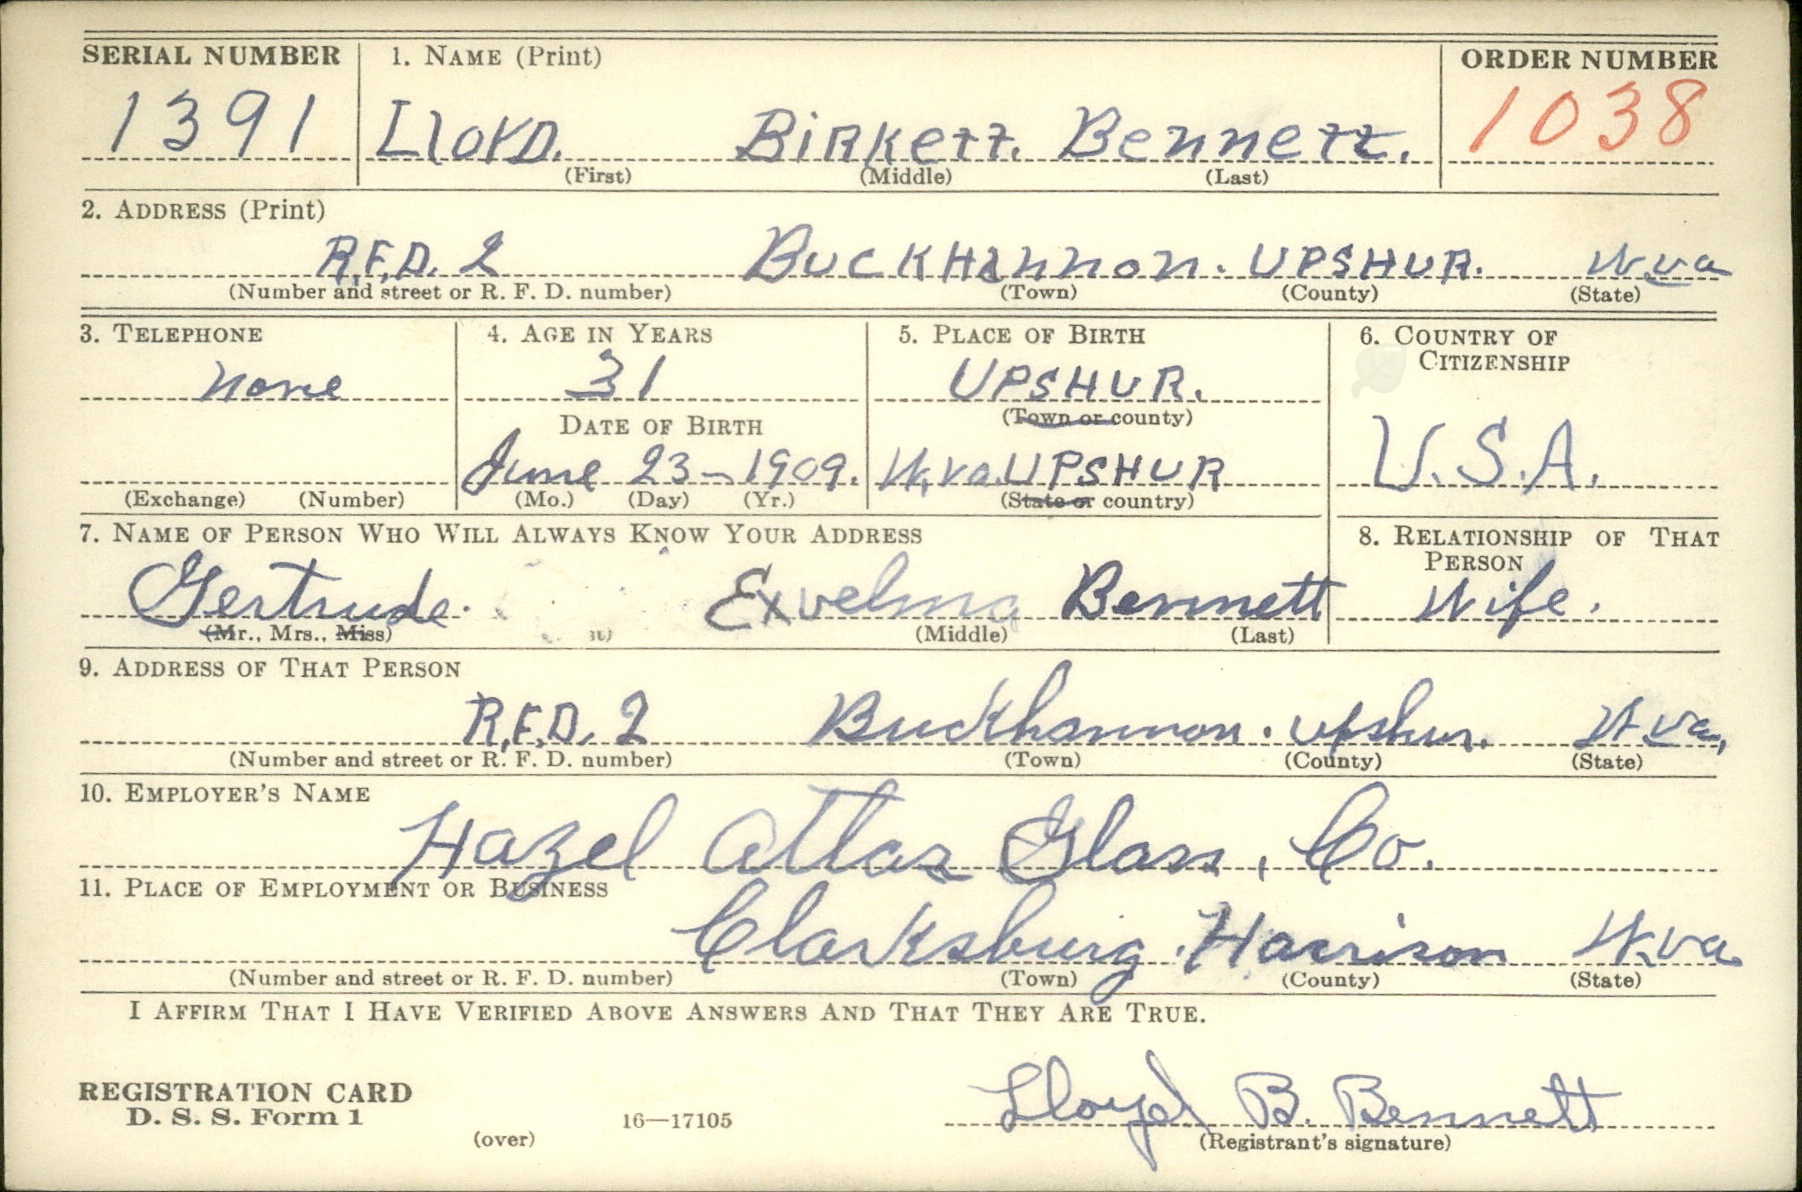 SERIAL NUMBER 1. NAME (Print) ORDER NUMBER
1391 Lloyd. Birkett. Bennett. 1038
(First) (Middle) (Last)
2. ADDRESS (Print)
R.F.D. 2 BUCKHannon. UPSHUR. W.va
(Number and street or R. F. D. number) (Town) (County) (State)
3. TELEPHONE 4. AGE IN YEARS 5. PLACE OF BIRTH 6. COUNTRY OF CITIZENSHIP
None 31 UPSHUR.
(Town or county)
DATE OF BIRTH
June 23-1909. W.va. UPSHUR U.S.A.
(Exchange) (Number) (Mo.) (Day) (Yr.) (State or country)
7. NAME OF PERSON WHO WILL ALWAYS KNOW YOUR ADDRESS 8. RELATIONSHIP OF THAT PERSON
Gertrude. Exvelma Bennett Wife.
(Mr., Mrs., Miss) (Middle) (Last)
9. ADDRESS OF THAT PERSON
R.F.D. 2 Buckhannon. Upshur. W.va,
(Number and street or R. F. D. number) (Town) (County) (State)
10. EMPLOYER'S NAME
Hazel Atlas Glass, Co.
11. PLACE OF EMPLOYMENT OR BUSINESS
Clarksburg. Harrison W.va
(Number and street or R. F. D. number) (Town) (County) (State)
I AFFIRM THAT I HAVE VERIFIED ABOVE ANSWERS AND THAT THEY ARE TRUE.
REGISTRATION CARD
D. S. S. Form 1
(over) 16—17105
Lloyd B. Bennett
(Registrant's signature)